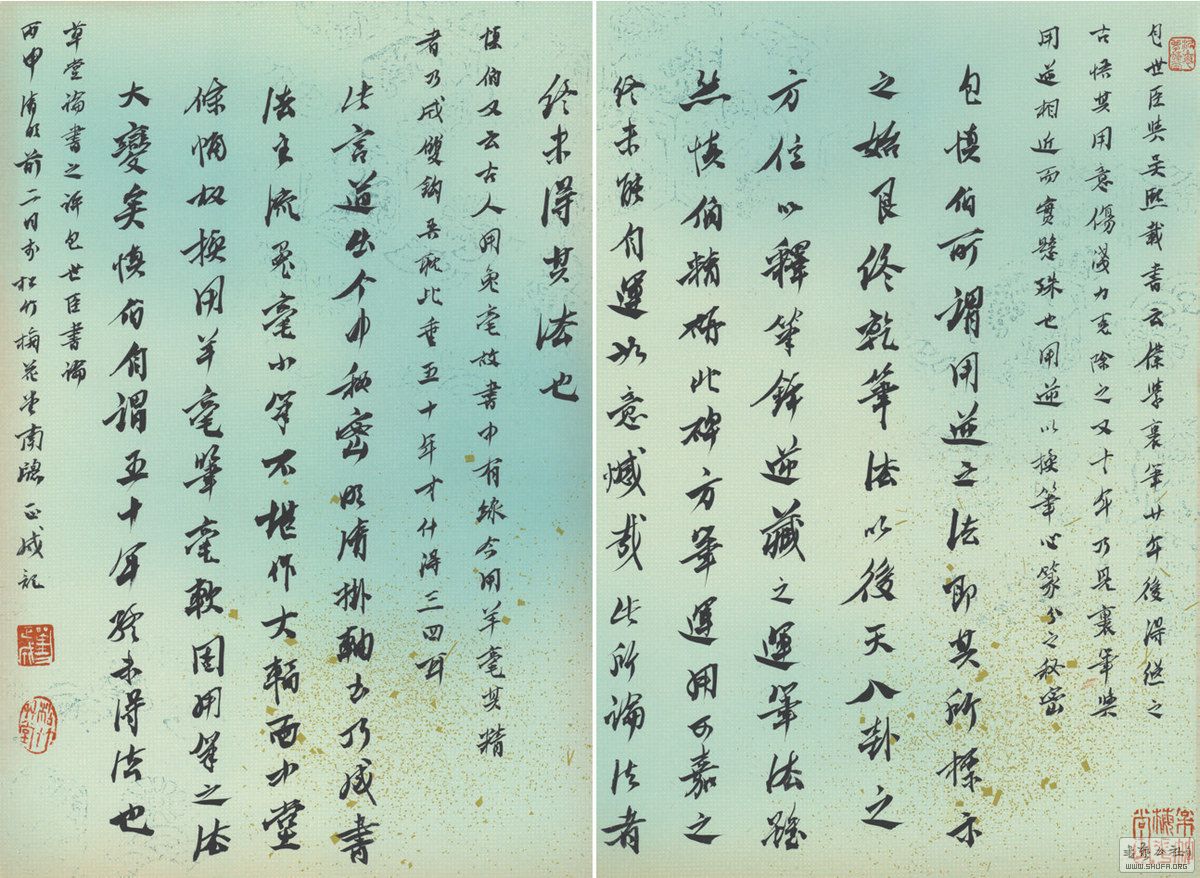 包世臣與吳熙載書云僕學裹筆廿年後得繼之
古悟其用意傷淺力克除之又十年乃見裹筆與
用逆相近而實懸殊也用逆以換筆心篆分之秘密
包慎伯所謂用逆之法即其所標示
之始艮終乾筆法以後天八卦之
方位以釋筆鋒逆藏之運筆法雖
然慎伯精研此碑方筆運用可嘉之
終未能自運以意憾哉此所論法者
終未得其法也
慎伯又云古人用兔毫故書中有線今用羊毫其精
者乃成雙鉤吾耽此垂五十年才什得三四耳
此言道出个中秘密明清掛軸書乃成書
法主流兔毫小筆不堪作大幅而中堂
條幅故換用羊毫筆毫軟因用筆之法
大變矣慎伯自謂五十年終未得法也
草堂論書之評包世臣書論
丙申清明前二日於松竹梅花堂南窗正成記
WWW.SHUFA.ORG